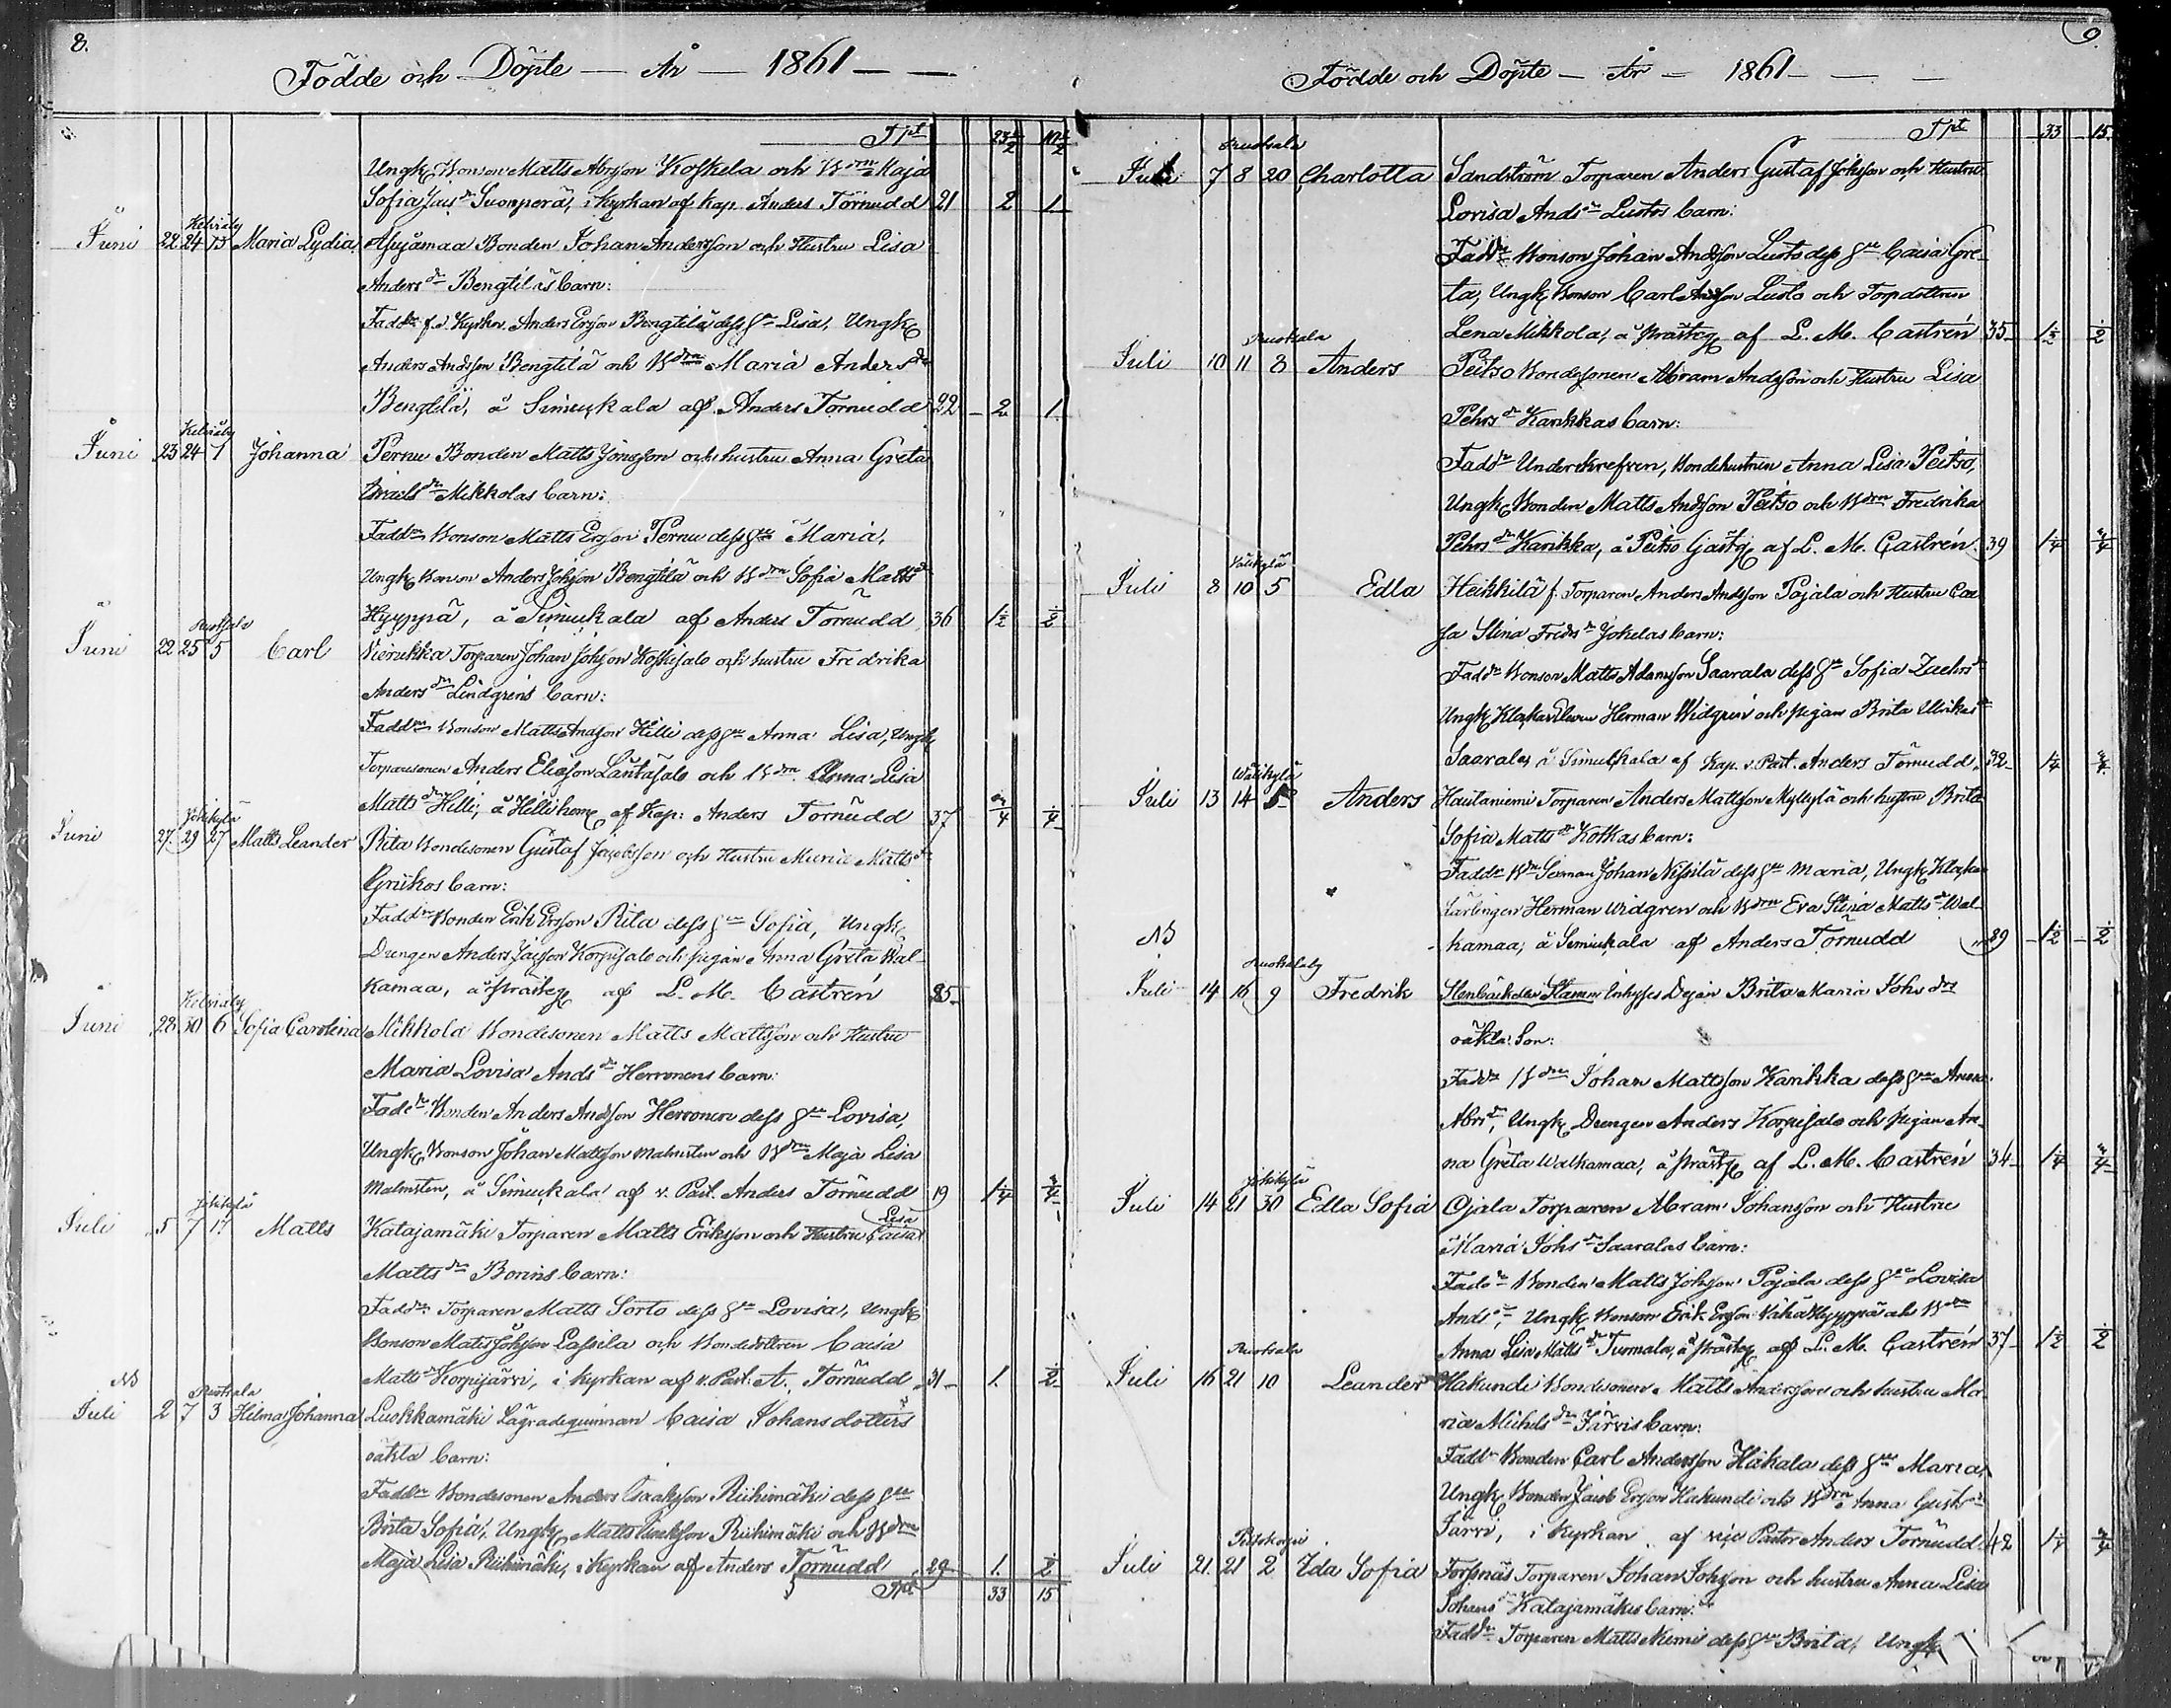 8.
Födde och Döpte — År — 1861 — —
Tpt 23½ 10½
Ungk. Bonson Matts Abrson Koskela och Bdrn Maja
Sofia Jais dr Suonperä, i Kyrkan af Kap. Anders Törnudd 21 2 1
Kelviåby
Juni 22 24 15 Maria Lydia Bonden Johan Andersson och Hustru Lisa
Anders dr Bengtiläs barn:
Fadd: f.d. Kyrkov. Anders Ersson Bengtilä dess hu Lisa, Ungk
Anders Andsson Bengtilä och Bdrn Maria Anders dr
Bengtilä, å Simiukala af Anders Törnudd 22 2 1
Kelviåby
Juni 23 24 1 Johanna Pernu Bonden Matts Jonsson och hustru Anna Greta
Israels dr Mikkolas barn:
Fadd: Bonson Matts Ersson Pernu dess hu Maria,
Ungk Bonson Anders Johsson Bengtilä och Bdrn Sofia Matts dr
Hyyppä, å Simiukala af Anders Törnudd 36 1½ ½
Ruotsala
Juni 22 25 5 Carl Vierukka Torparen Johan Johsson Koskisalo och hustru Fredrika
Anders dr Lindgrens barn:
Fadd: Bonson Matts Andsson Hilli dess hu Anna Lisa, Ungk
Torparesonen Anders Eliasson Läntäsalo och Bdrn Anna Lisa
Matts dr Hilli, å Hilli hem af Kap: Anders Törnudd 37 ¾ ¼
Jokikylä
Juni 27 29 27 Matts Leander Rita Bondesonen Gustaf Jacobsson och Hustru Maria Matts dr
Griikos barn:
Fadd: Bonden Erik Ersson Rita dess hu Sofia, Ungk
Drengen Anders Jacsson Korpisalo och pigan Anna Greta Wal-
kamaa, å prästg af L. M. Castrén 35
Kelviåby
Juni 28 30 6 Sofia Carolina Mikkola Bondesonen Matts Mattsson och Hustru
Maria Lovisa Ands dr Herronens barn:
Fadd: Bonden Anders Andsson Herronen dess hu Lovisa,
Ungk Bonson Johan Mattsson Malmsten och Bdrn Maja Lisa
Malmsten, å Simiukala af v. Past. Anders Törnudd 19 1¼ ¾
Jokikylä
Juli 5 7 17 Matts Katajamäki Torparen Matts Eriksson och Hustru Caisa Lisa
Matts dr Borins barn:
Fadd: Torparen Matts Sorto dess hu Lovisa, Ungk
Bonson Matts Johsson Lassila och Bondedottren Caisa
Matts dr Korpijärvi, i kyrkan af v. Past. A. Törnudd 31 1. ½
NB Ruotsala
Juli 2 7 3 Hilma Johanna Luokkamäki Lägradequinnan Caisa Johansdotters
oäkta barn:
Fadd: Bondesonen Anders Isaaksson Riihimäki dess hu
Brita Sofia, Ungk Matts Isaaksson Riihimäki och Bdrn
Maja Lisa Riihimäki, i Kyrkan af Anders Törnudd 29 1. ½
Tpt 33 15
9.
Födde och Döpte — År — 1861 — —
Tpt 33 15
Ruotsala
Juli 7 8 20 Charlotta Sandström Torparen Anders Gustaf Johsson och Hustru
Lovisa Ands dr Lustos barn:
Fadd: Bonson Johan Andsson Lusto dess hu Caisa Gre-
ta, Ungk Bonson Carl Andsson Lusto och Torpdottren
Lena Mikkola, å prästg af L. M. Castrén 35 1½ ½
Ruotsala
Juli 10 11 8 Anders Peitso Bondesonen Abram Andsson och Hustru Lisa
Pehrs dr Karikkas barn:
Fadd: Underskrefven, Bondehustrun Anna Lisa Peitso,
Ungk Bonden Matts Andsson Peitso och Bdrn Fredrika
Pehrs dr Karikka, å Peitso Gästg af L. M. Castrén 39 1¼ ¾
Välikylä
Juli 8 10 5 Edla Heikkilä f. Torparen Anders Andsson Pajala och Hustru Cai
sa Stina Freds dr Jokelas barn:
Fadd: Bonson Matts Adamsson Saarala dess hu Sofia Zachrs dr
Ungk Klockar Eleven Herman Widgren och pigan Brita Ulrika
Saarala, i Simiukala af Kap. v. Past. Anders Törnudd. 32 1¼ ¾
Wälikylä
Juli 13 14 Anders Hautaniemi Torparen Anders Mattsson Myllylä och hustru Brita
Sofia Matts dr Kotkas barn:
Fadd: Johan Nissilä dess hu Maria, Ungk Klockare
lärlingen Herman Widgren och Bdrn Eva Stina Matts dr Wal-
kamaa, å Simiukala af Anders Törnudd 29 1½ ½
NB Ruotsalaby
Juli 14 16 9 Fredrik Inhyses Pigan Brita Maria Johs drs
oäkta Son:
Fadd: Bdn Johan Mattsson Karikka dess hu Anna
Abrs dr, Ungk Drengen Anders Korpisalo och pigan An-
na Greta Walkamaa, å prästg af L. M. Castrén 34 1¼ ¾
Jokikylä
Juli 14 21 30 Edla Sofia Ojala Torparen Abram Johansson och Hustru
Maria Johs dr Saaralas barn:
Fadd: Bonden Matts Johsson Pajala dess hu Lovisa
Ands dr, Ungk Bonson Erik Ersson Vähähyyppä och Bdrn
Anna Lisa Matts dr Tunnala, å prästg af L. M. Castrén 37 1½ ½
Ruotsala
Juli 16 21 10 Leander Hakundi Bondesonen Matts Andersson och hustru Ma
ria Michels dr Järvis barn:
Fadd: Bonden Carl Andersson Hakala dess hu Maria,
Ungk Bonden Jacob Ersson Hakundi och Bdrn Anna Gusts dr
Järvi, i Kyrkan af vice Pastor Anders Törnudd 42 1¼ ¾
Passoja
Juli 21 21 2 Ida Sofia Torpnäs Torparen Johan Johsson och hustru Anna Lisa
Johans dr Katajamäkis barn:
Fadd: Torparen Matts Niemi dess hu Brita, Ungk